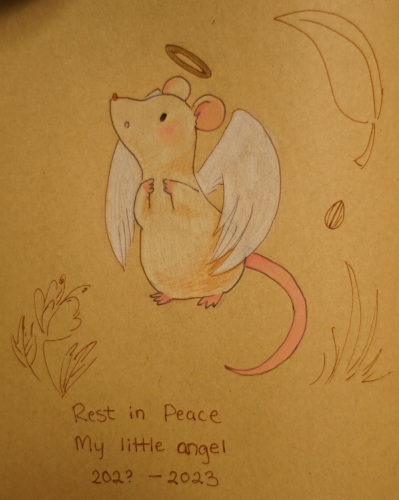 Rest in Peace
My little angel
202? - 2023